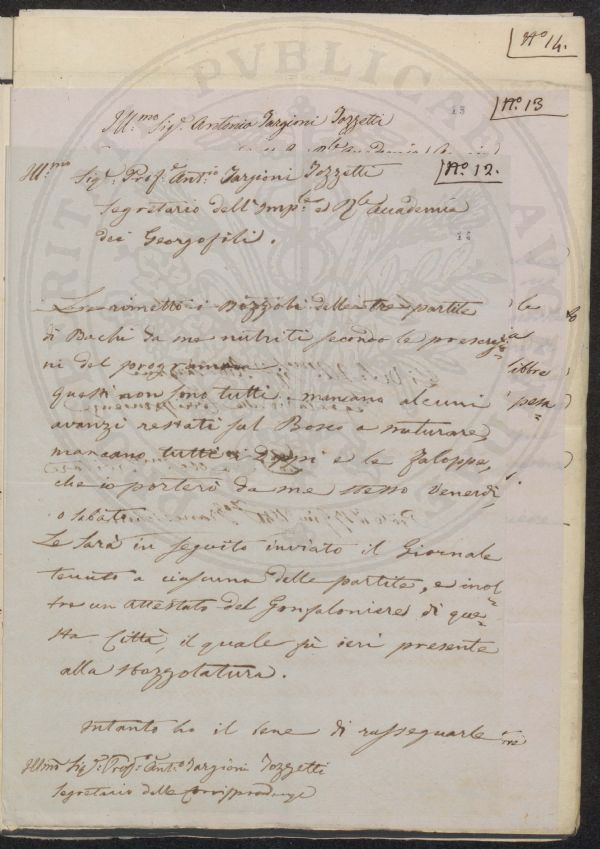 Nº 14.
Nº 13
13
Ill.mo Sig.r Antonio Targioni Tozzetti
Nº 12.
Ill.mo Sig.r Prof.r Ant.o Targioni Tozzetti
Segretario dell'Imp.e e R.le Accademia
dei Georgofili.
12
Le rimetto i Bozzoli delle tre partite
di Bachi da me nutriti secondo le prescrizio
ni del programma
questi non sono tutti, mancano alcuni
avanzi restati sul Bosco a maturare,
mancano tutti i Doppi e la Faloppa,
che io porterò da me stesso Venerdì,
o sabato.
Le sarà in seguito inviato il Giornale
tenuto a ciascuna delle partite, e inol=
tre un attestato del Gonfaloniere di que=
sta Città, il quale fù ieri presente
alla sbozzolatura.
Intanto ho il bene di rassegnarle
Illmo Sig.r Prof.r Ant.o Targioni Tozzetti
Segretario delle Corrispondenze
PVBLICAE